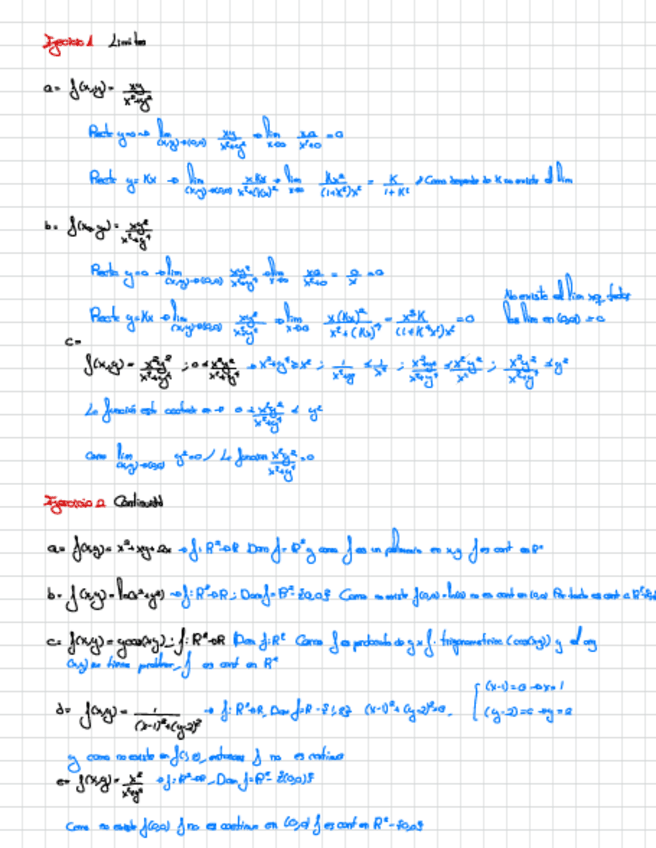 Ejercicio 1 Limites
a= f(x,y)= xy/x²+y²
Recta y=0 → lim (x,y)→(0,0) xy/x²+y² → lim x→0 x0/x²+0 = 0
Recta y=Kx → lim (x,y)→(0,0) xKx/x²+(Kx)² → lim x→0 Kx²/(1+K²)x² = K/1+K² → Como depende de K no existe el lim
b= f(x,y)= xy²/x²+y⁴
Recta y=0 → lim (x,y)→(0,0) xy²/x²+y⁴ → lim x→0 x0/x²+0 = 0/x = 0
No existe el lim xq todos
Recta y=Kx → lim (x,y)→(0,0) xy²/x²+y⁴ → lim x→0 x(Kx)²/x²+(Kx)⁴ = = 0
los lim en (0,0) = 0
c=
f(x,y)= x²y²/x²+y⁴ ; 0 ≤ x²y²/x²+y⁴ → x²+y⁴ ≥ x² ; ≤ 1/x² ; x²y²/x²+y⁴ ≤ x²y²/x² ; x²y²/x²+y⁴ ≤ y²
La función está acotada → 0 ≤ x²y²/x²+y⁴ ≤ y²
Como lim (x,y)→(0,0) y²=0 / La funcion x²y²/x²+y⁴ = 0
Ejercicio 2 Continuidad
a= f(x,y)= x²+xy+2x → f: R²→R Dom f= R² y como f es un polinomio en x,y f es cont en R²
b= f(x,y)= ln(x²+y²) → f: R²→R ; Dom f= R²- {0,0} Como no existe f(0,0)=ln(0) no es cont en (0,0) Por tanto es cont a R²-
c= f(x,y)= ycos(xy) ; f: R²→R Dom f: R² Como f es producto de y × f. trigonometrica (cos(xy)) y el
(x,y) no tiene problemas, f es cont en R²
d= f(x,y)= 1/(x-1)²+(y-2)² → f: R²→R, Dom f= R - {1,2} (x-1)²+(y-2)²=0 { (x-1)=0 → x=1
(y-2)=0 → y=2
y como no existe en entonces f no es continua
e= f(x,y)= x²/x²+y² → f: R²→R, Dom f= R²- {(0,0)}
Como no existe f(0,0) f no es continua en (0,0) f es cont en R²-{0,0}